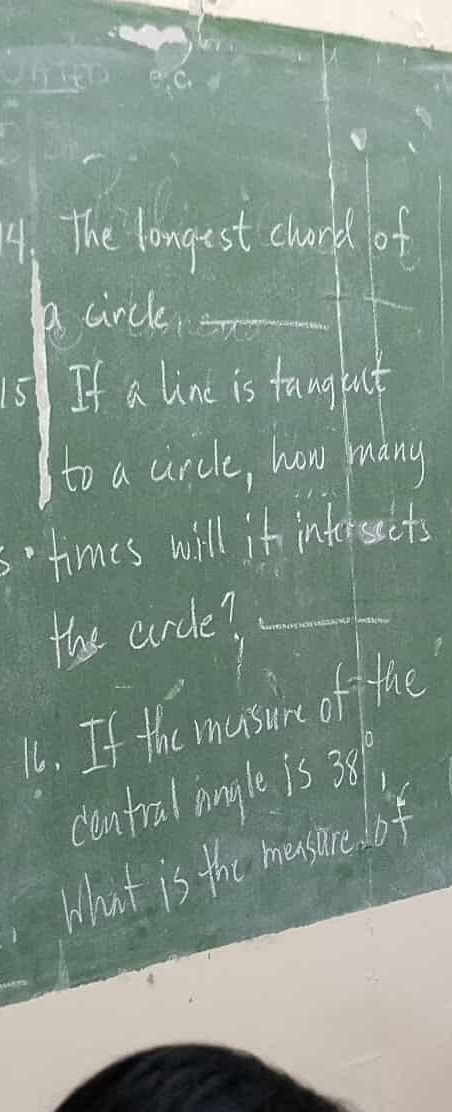 14. The longest chord of
a circle
15 If a line is tangent
to a circle, how many
times will it intersects
the circle?
16. If the measure of the
central angle is 38°,
What is the measure of